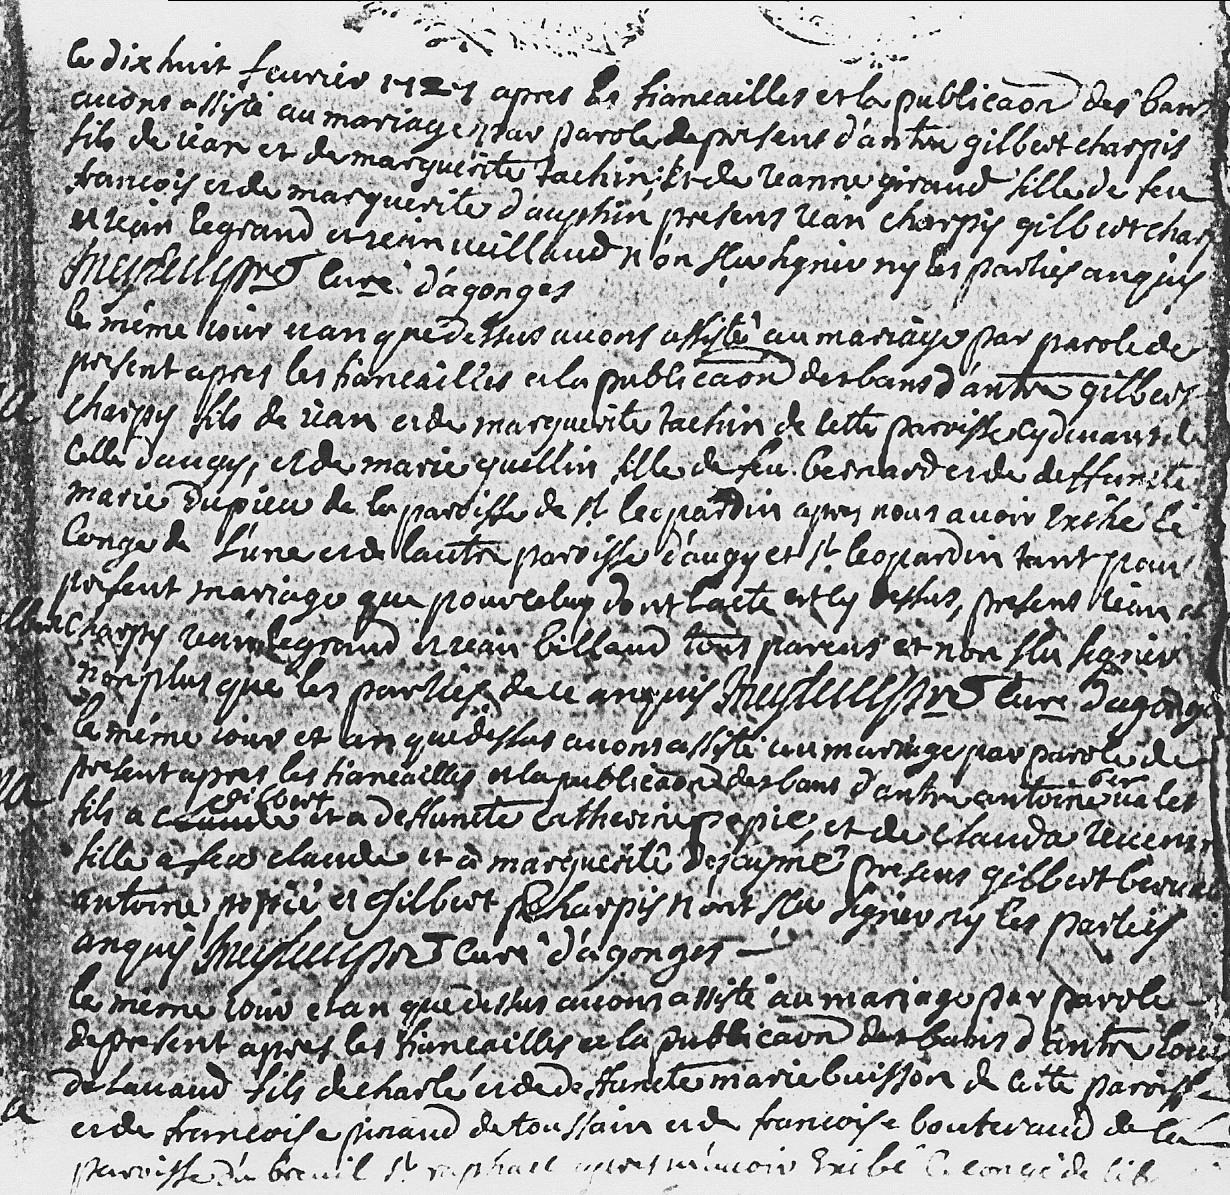 le dixhuit feurier 1727 apres les fiancailles et la publicaon des bans
auons assisté au mariage par parole de present d'antre gilbert charpis
fils de iean et de marguerite tachin, Et de ieanne giraud fille de feu
francois et de marguerite d'auphin presens iean charpis gilbert charp
et iean legrand et iean ueillaud n'on sceu signer ny les parties anquis
curé d'agonges
le même iour et an que dessus auons assisté au mariage par parole de
present apres les fiancailles et la publicaon des bans d'antre gilbert
charpy fils de iean et de marguerite tachin de cette paroisse cy deuant de
celle d'augy, et de marie guellin fille de feu bernard et de deffuncte
marie Dupieu de la paroisse de st leopardin apres nous auoir Exibé le
Congé de l'une et de lautre paroisse d'augy et st leopardin tant pour
present mariage que pour celuy dont lacte est cy dessus, presens iean et
Charpy iean legrand et iean billaud tous parens et non sceu signer
non plus que les parties de ce anquis curé d'agonge
le même iour et an que dessus auons assisté au mariage par parole de
present apres les fiancailles et la publicaon des bans d'antre antoine ualet
fils a gilbert et a deffuncte Catherine pepie, et de Clauda
fille a feu claude et a marguerite Dejayme presens gilbert
antoine et Gilbert Charpis n'ont sceu signer ny les parties
anquis curé d'agonges
le même iour et an que dessus auons assisté au mariage par parole
de present apres les fiancailles et la publicaon des bans d'antre loui
de lauaud fils de charle et de deffuncte marie buisson de cette paroisse
et de francoise piraud de toussain et de francoise bouteraud de la
paroisse du breuil st raphael apres m'auoir Exibé le congé de